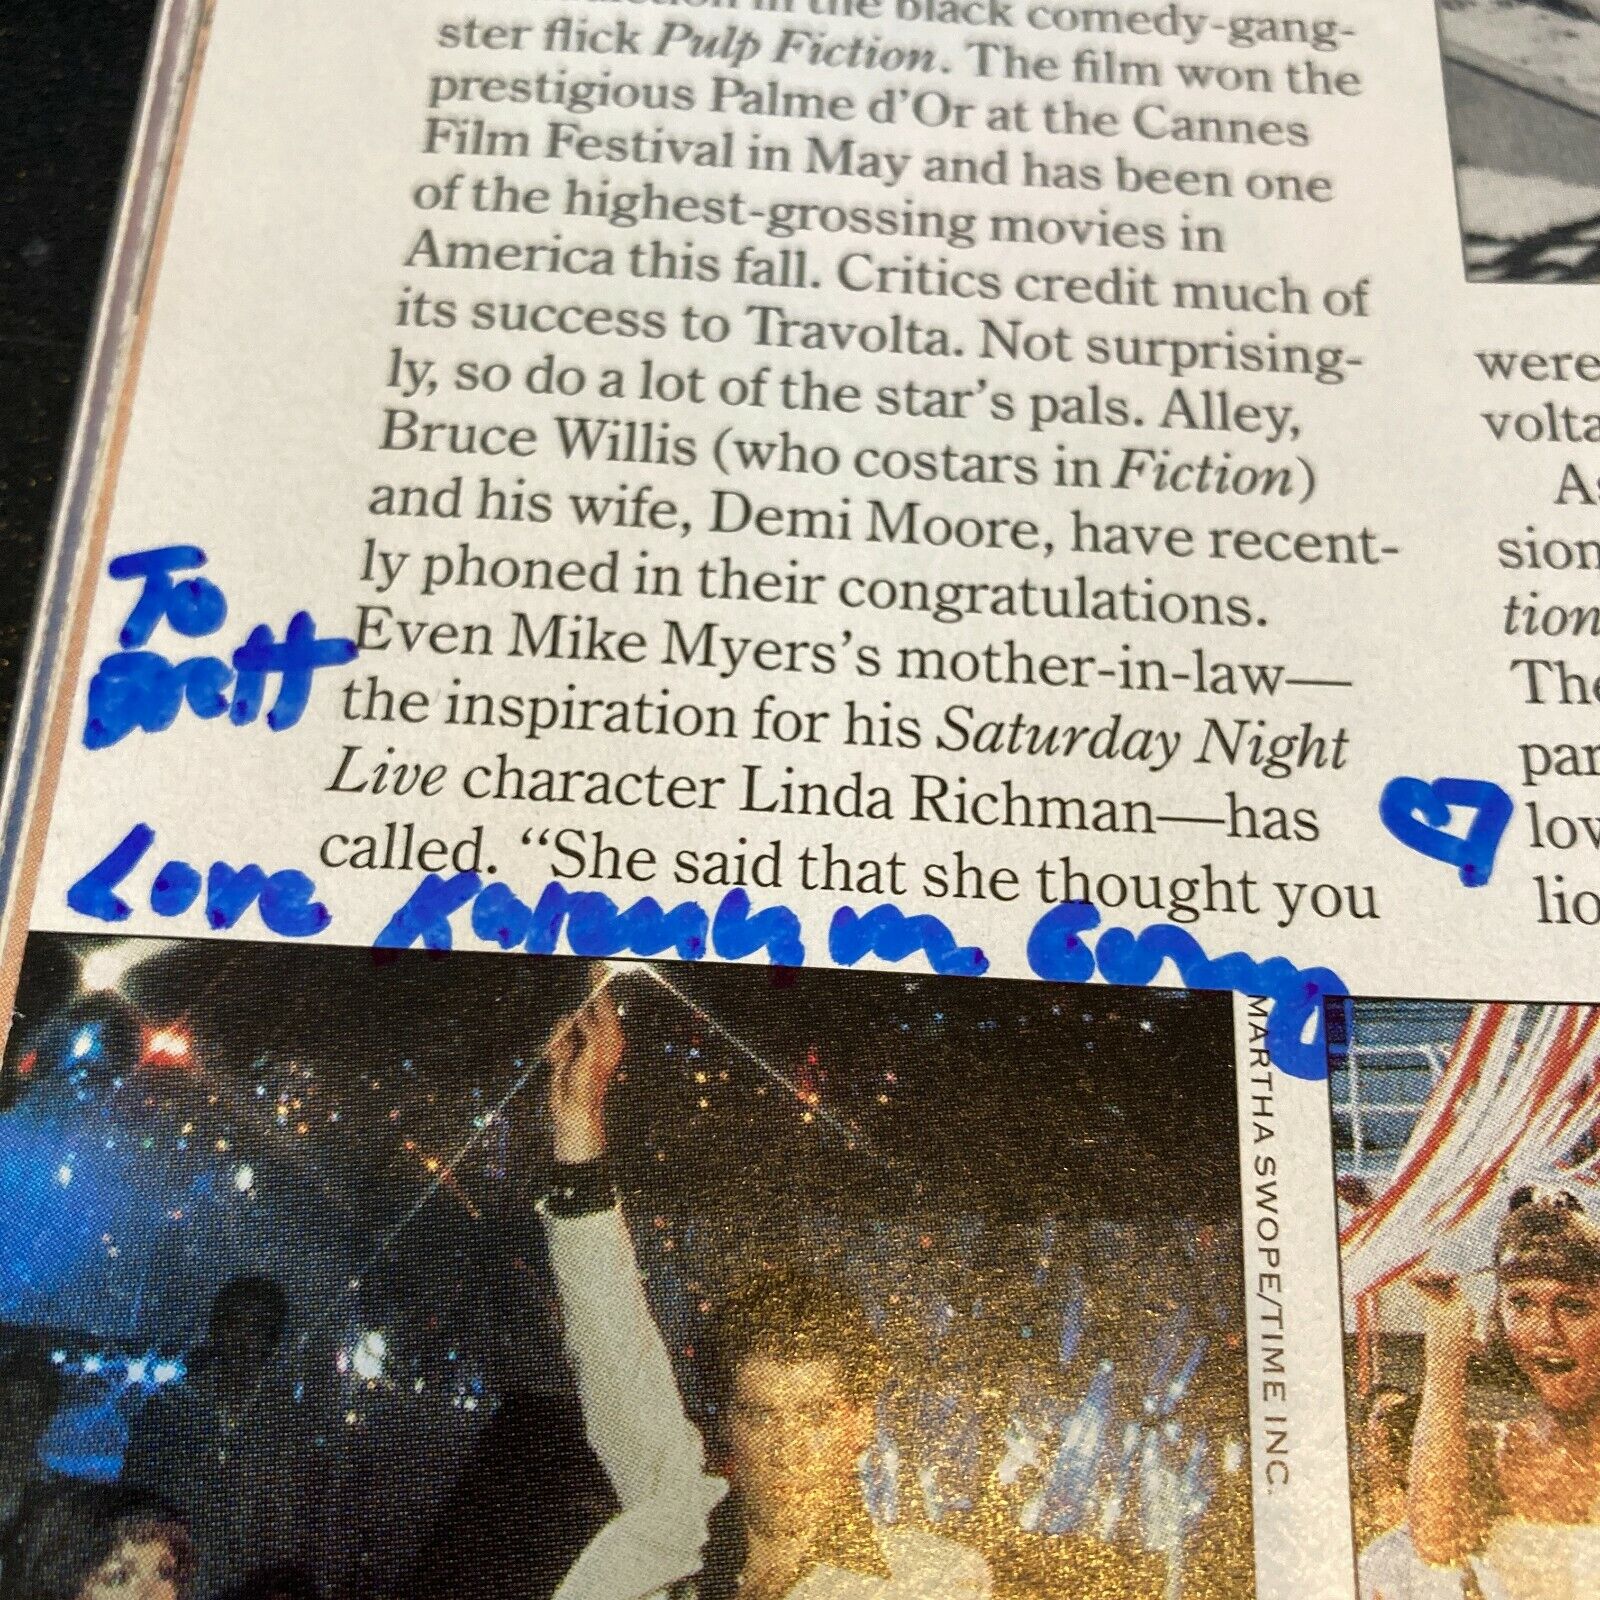 in the black comedy-gang-
ster flick Pulp Fiction. The film won the
prestigious Palme d'Or at the Cannes
Film Festival in May and has been one
of the highest-grossing movies in
America this fall. Critics credit much of
its success to Travolta. Not surprising-
ly, so do a lot of the star's pals. Alley,
Bruce Willis (who costars in Fiction)
and his wife, Demi Moore, have recent-
ly phoned in their congratulations.
Even Mike Myers's mother-in-law—
the inspiration for his Saturday Night
Live character Linda Richman—has
called. “She said that she thought you
To
Brett
Love Karen Lynn Gorney
were
volta
As
sion
tion
The
par
lov
lio
MARTHA SWOPE/TIME INC.